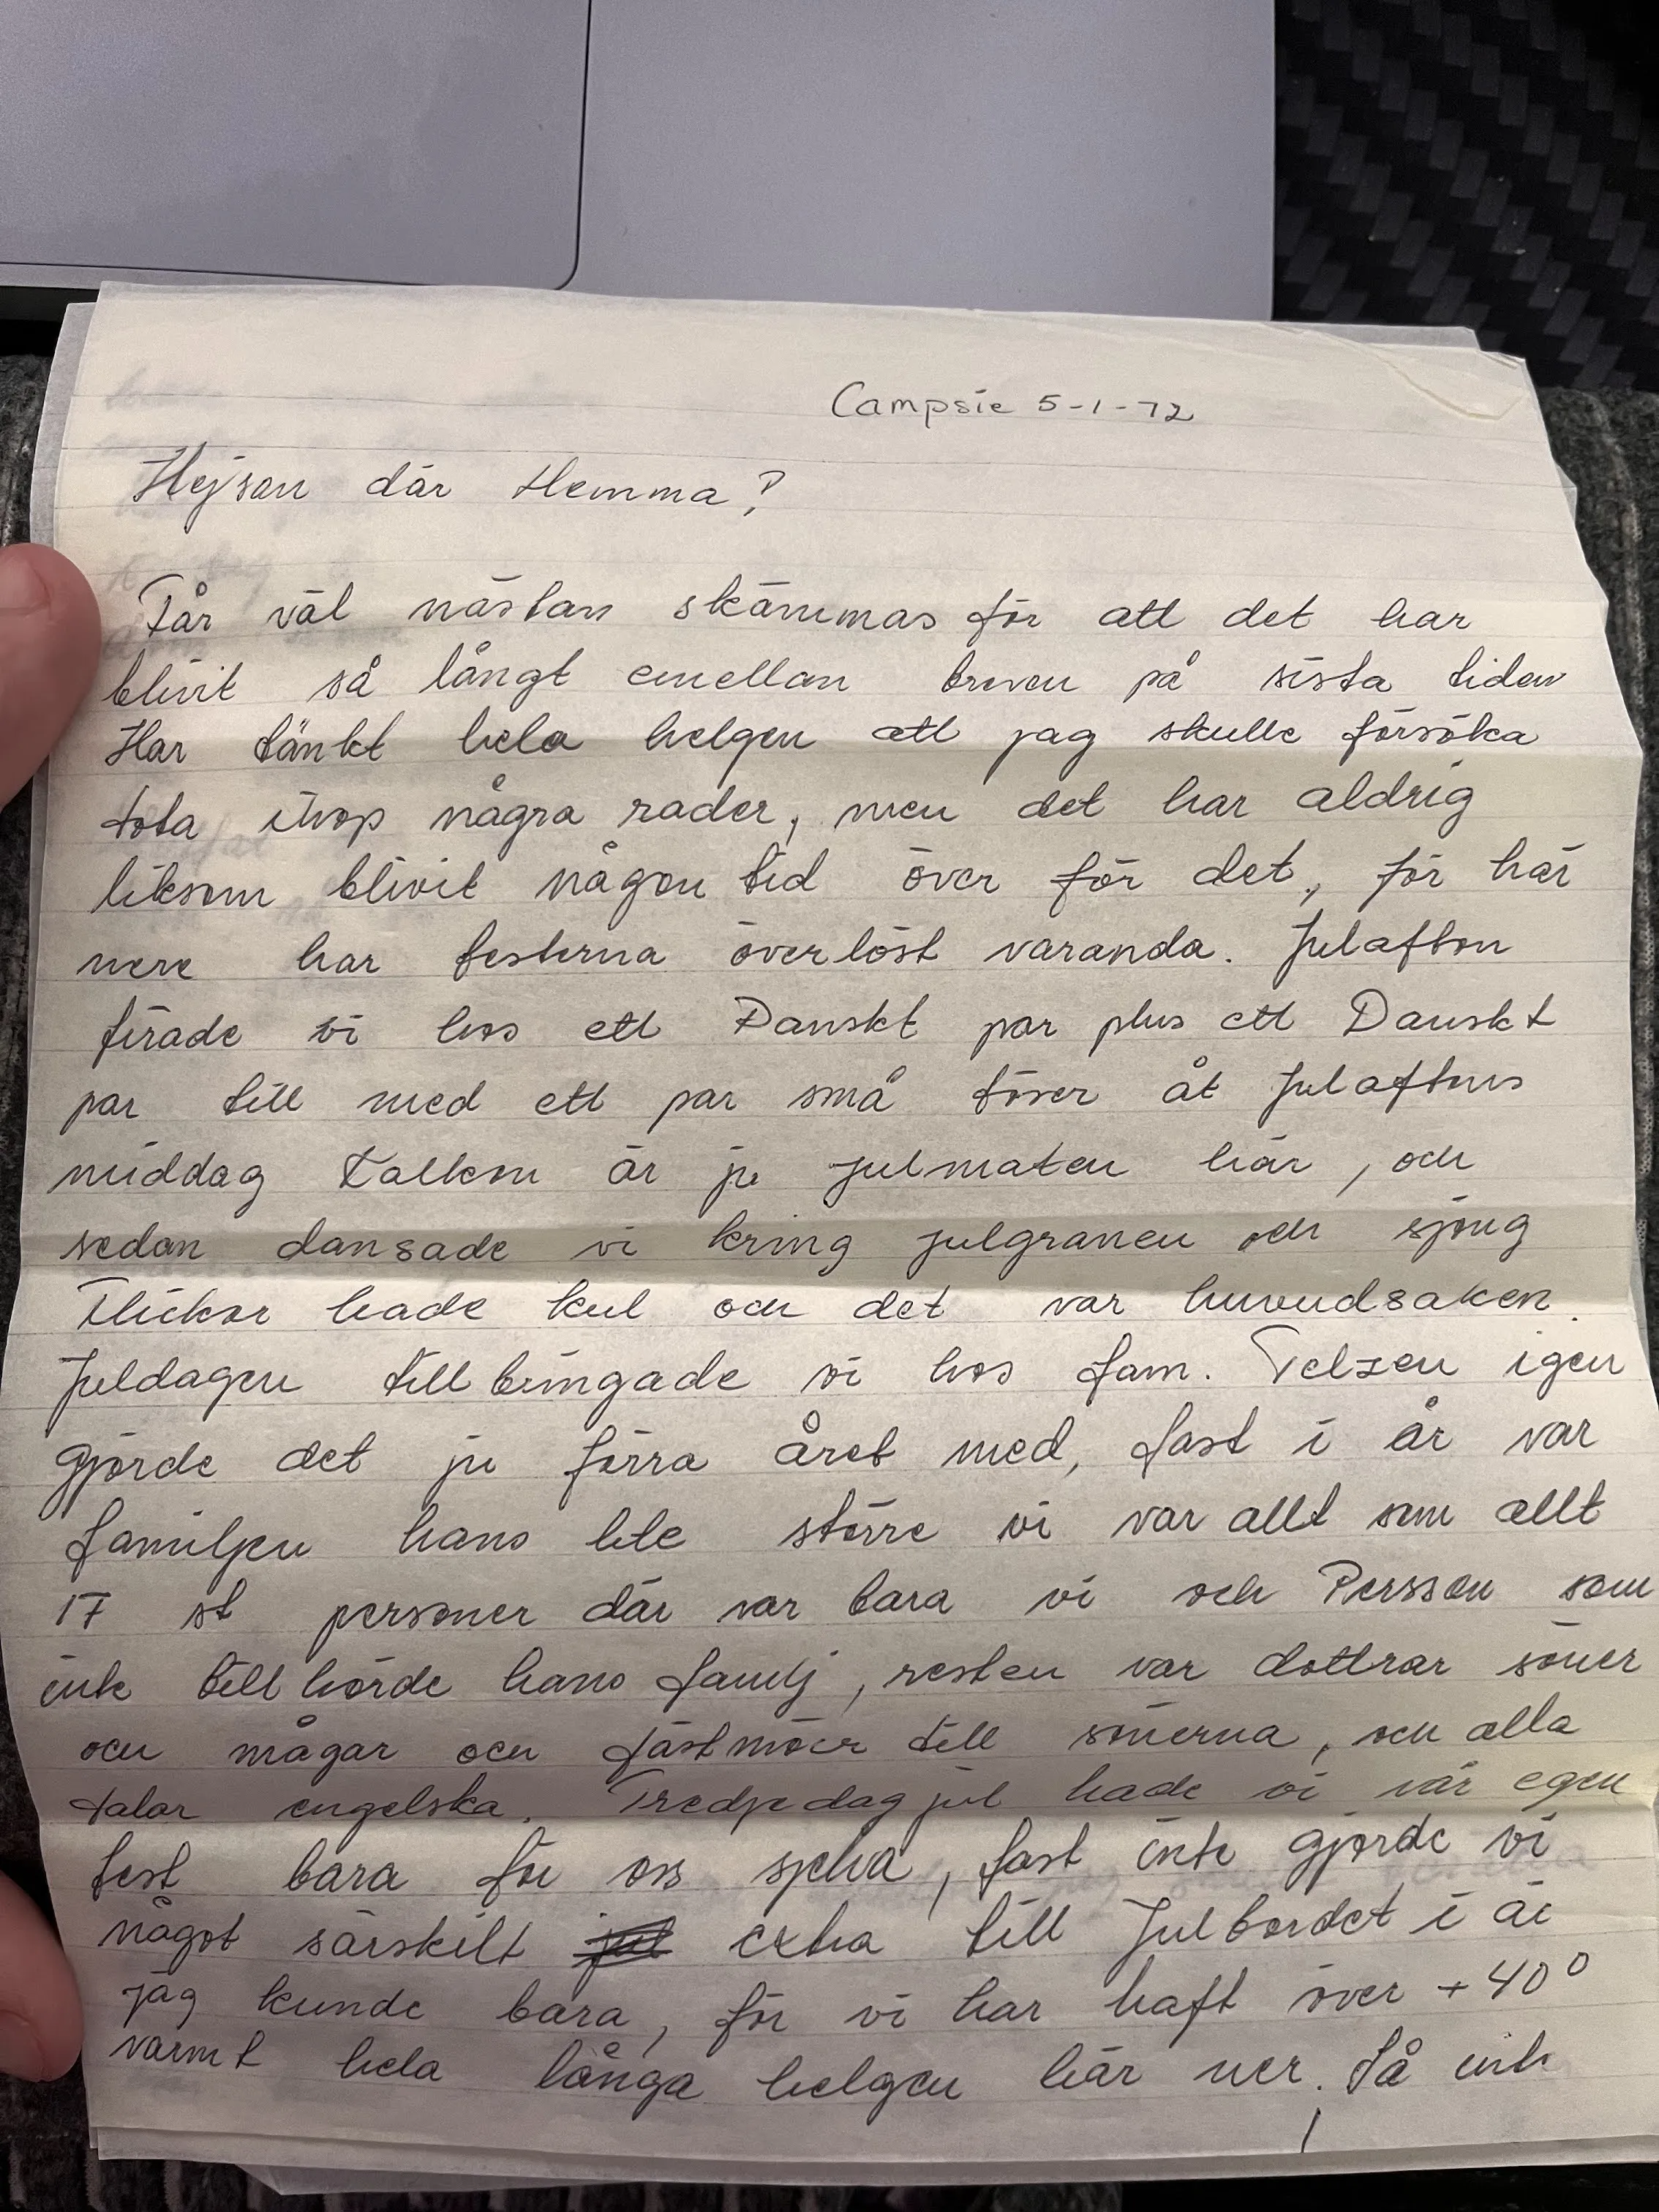 Campsie 5-1-72
Hejsan där Hemma?
Får väl nästan skämmas för att det har
blivit så långt emellan breven på sista tiden
Har tänkt hela helgen att jag skulle försöka
tota ihop några rader, men det har aldrig
liksom blivit någon tid över för det, för här
nere har festerna överlöst varanda. Julafton
firade vi hos ett Danskt par plus ett Danskt
par till med ett par små töser åt Julaftons
middag Kalkon är ju julmaten här, och
sedan dansade vi kring julgranen och sjöng
Flickor hade kul och det var huvudsaken.
Juldagen tillbringade vi hos fam. Telzen igen
gjorde det ju förra året med, fast i år var
familjen hans lite större vi var allt som allt
17 st personer där var bara vi och Persson som
inte tillhörde hans familj, resten var döttrar söner
och mågar och fästmöer till sönerna, och alla
talar engelska. Tredjedag jul hade vi vår egen
fest bara för oss själva, fast inte gjorde vi
något särskilt extra till Julbordet i år
jag kunde bara, för vi har haft över +40°
varmt hela långa helgen här ner. Så inte
1